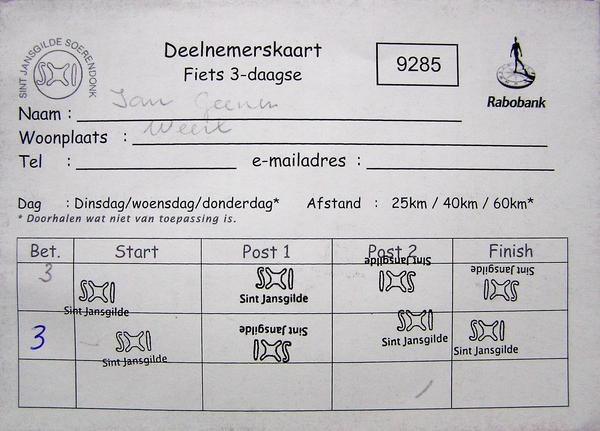 SINT JANSGILDE SOERENDONK
Deelnemerskaart
Fiets 3-daagse
9285
Rabobank
Naam : Jan Geenen
Woonplaats : Weert
Tel : e-mailadres :
Dag : Dinsdag/woensdag/donderdag* Afstand : 25km / 40km / 60km*
* Doorhalen wat niet van toepassing is.
Bet. Start Post 1 Post 2 Finish
3 Sint Jansgilde Sint Jansgilde Sint Jansgilde Sint Jansgilde
3 Sint Jansgilde Sint Jansgilde Sint Jansgilde Sint Jansgilde